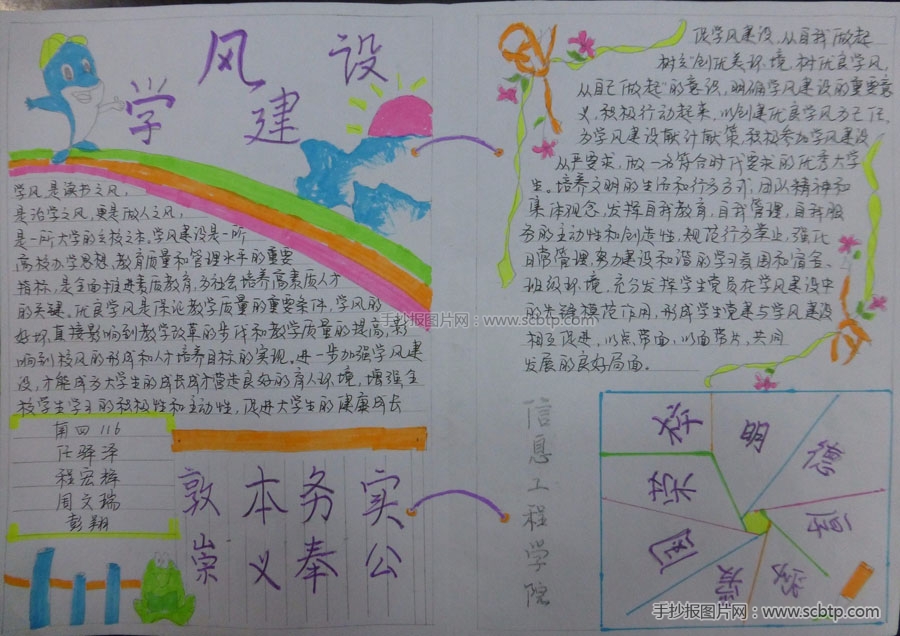 学风建设
学风是读书之风,
是治学之风,更是做人之风,
是一所大学的立校之本。学风建设是一所
高校办学思想、教育质量和管理水平的重要
指标,是全面推进素质教育,为社会培养高素质人才
的关键。优良学风是保论教学质量的重要条件,学风的
好坏,直接影响到教学改革的步伐和教学质量的提高,影
响到校风的形成和人才培养目标的实现。进一步加强学风建
设,才能成为大学生的成长成才营造良好的育人环境,增强全
校学生学习的积极性和主动性,促进大学生的健康成长
南四116
任驿泽
程宏梓
周文瑞
彭翔
敦本务实
崇义奉公
促学风建设,从自我做起
树立"创优美环境,树优良学风,
从自己做起"的意识,明确学风建设的重要意
义,积极行动起来,以创建优良学风为己任,
为学风建设献计献策,积极参加学风建设
从严要求,做一名符合时代要求的优秀大学
生。培养文明的生活和行为方式,团队精神和
集体观念,发挥自我教育,自我管理,自我服
务的主动性和创造性,规范行为举止,强化
日常管理,努力建设和谐的学习氛围和宿舍、
班级环境,充分发挥学生党员在学风建设中
的先锋模范作用,形成学生党建与学风建设
相互促进,以点带面,以面带片,共同
发展的良好局面。
信息工程学院
明德厚学
爱国荣校
手抄报图片网:www.scbtp.com
手抄报图片网:www.scbtp.com